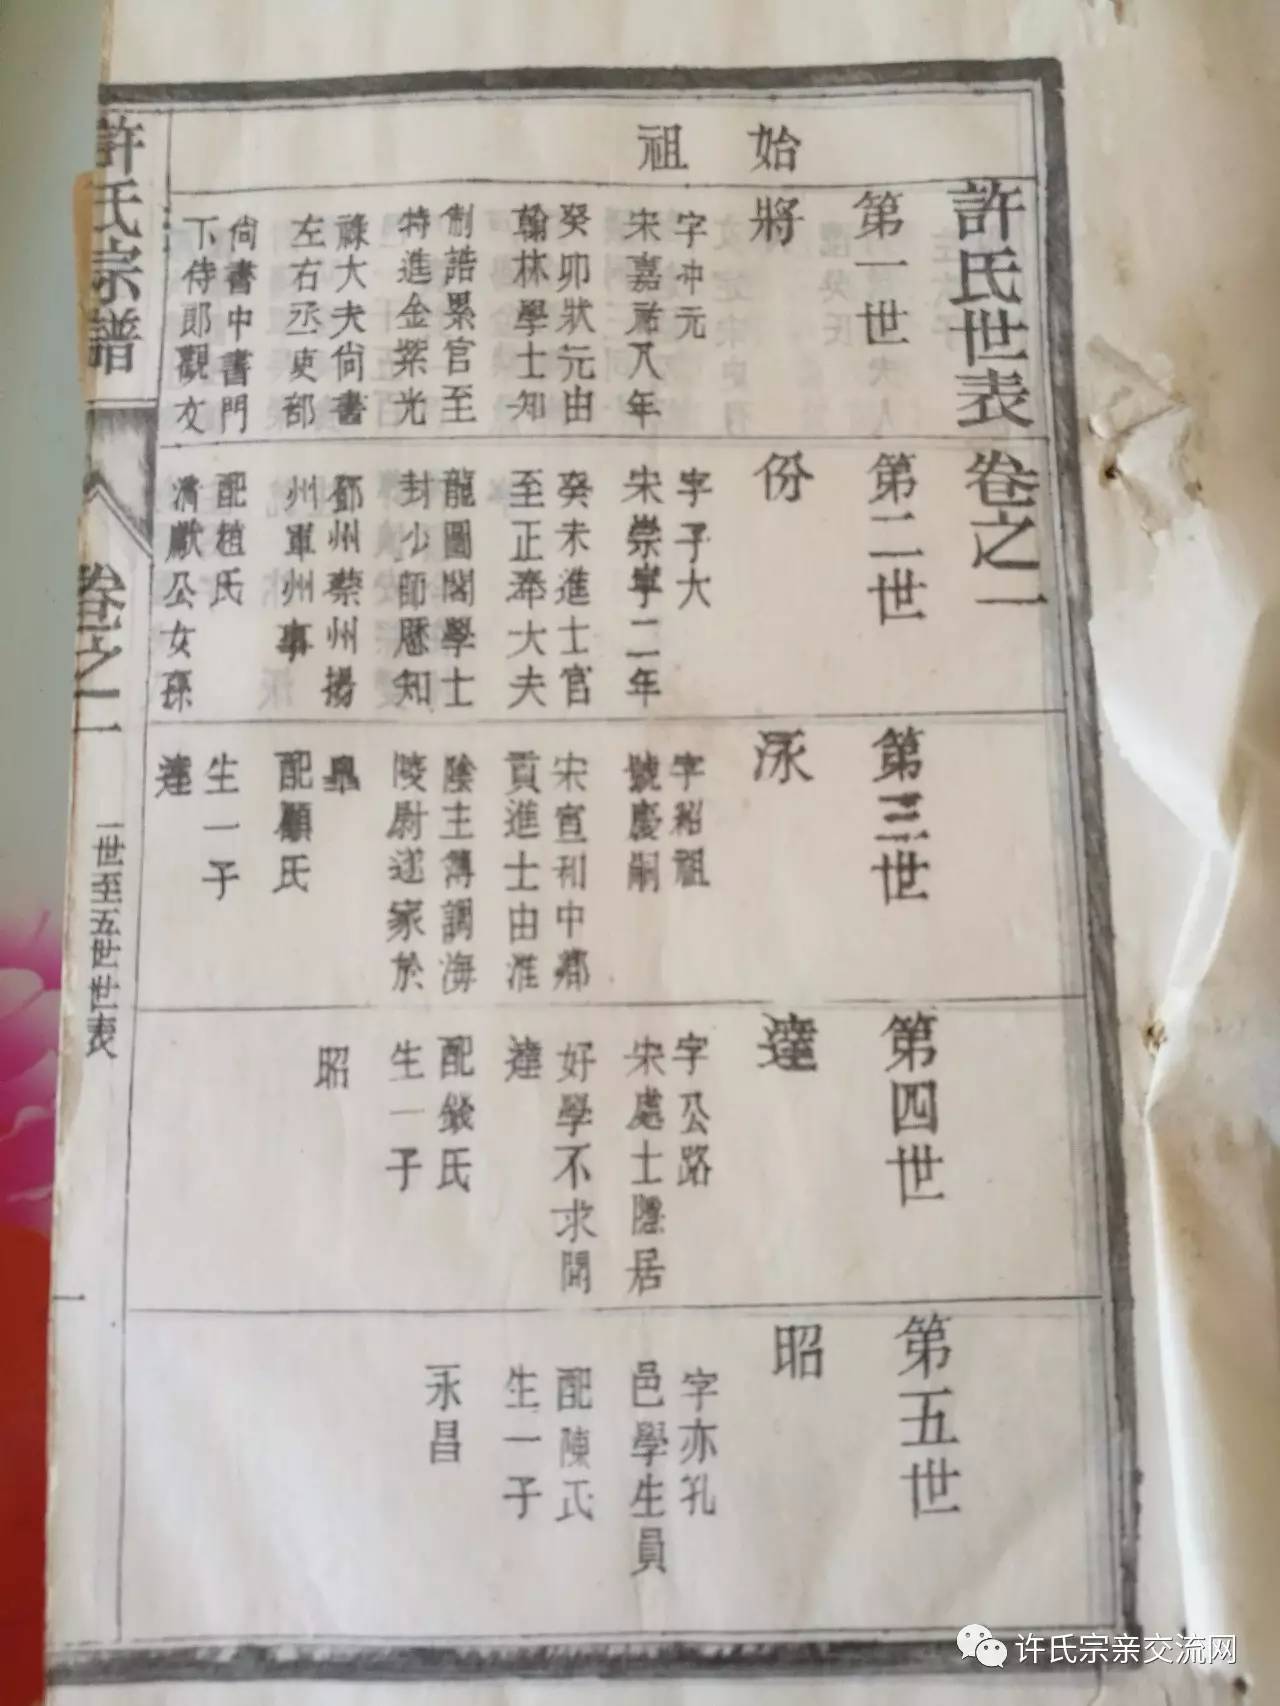 許氏世表卷之一
始祖
第一世
將
字冲元
宋嘉祐八年
癸卯狀元由
翰林學士知
制誥累官至
特進金紫光
祿大夫尙書
左右丞吏部
尙書中書門
下侍郎觀文
第二世
份
字子大
宋崇寧二年
癸未進士官
至正奉大夫
龍圖閣學士
封少師歷知
鄧州蔡州揚
州軍州事
配趙氏
清獻公女孫
第三世
泳
字紹祖
號慶嗣
宋宣和中鄕
貢進士由淮
陰主簿調海
陵尉遂家於
臯
配顧氏
生一子
達
第四世
達
字公路
宋處士隱居
好學不求聞
達
配嚴氏
生一子
昭
第五世
昭
字亦孔
邑學生員
配陳氏
生一子
永昌
許氏宗譜
卷之一
一世至五世世表
一
许氏宗亲交流网